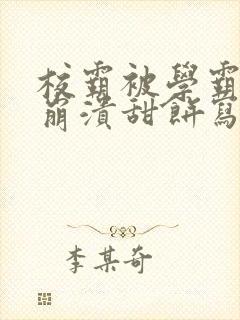 校霸被學霸
崩潰甜餅寫
李某奇